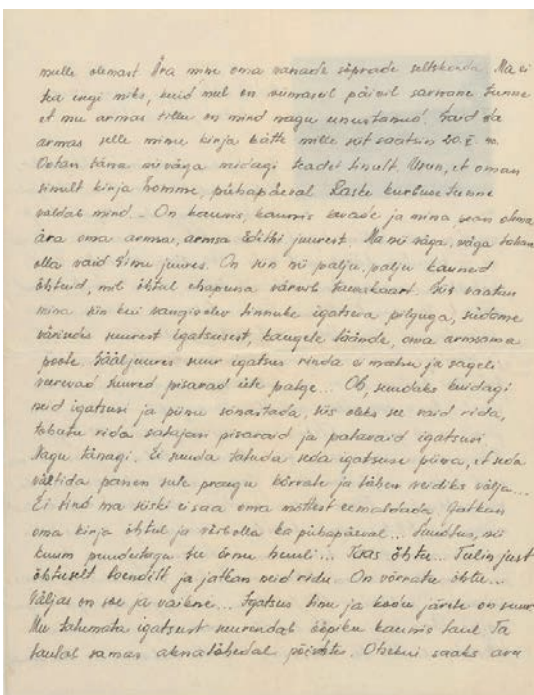 mulle olemast Ära mine oma vanade sõprade seltskonda. Ma ei
tea isegi miks, kuid mul on viimaseil päevil sarnane tunne
et mu armas on mind nagu unustanud. Said sa
armas selle minu kirja kätte mille siit saatsin 20.
Ootan täna nii väga midagi teadet sinult. Usun, et oman
sinult kirja homme, pühapäeval. Raske kurbuse tunne
valdab mind. - On kaunis, kaunis kevade ja mina pean olema
ära oma armsa, armsa Edithi juurest. Ma nii väga, väga tahan
olla vaid Sinu juures. On siin nii palju, palju kauneid
õhtuid, mil õhtul ehapuna värvib taevakaart. Siis vaatan
mina siin kui vangisolev linnuke igatseva pilguga, südame
värisedes suurest igatsusest, kaugele läände, oma armsama
poole. Sääljuures suur igatsus rinda ei mahu ja sageli
veerevad suured pisarad üle palge... Oh, suudaks kuidagi
neid igatsusi ja piinu sõnastada, siis oleks see vaid rida,
tohutu rida sadajaid pisaraid ja palavaid igatsusi
Nagu tänagi. Ei suuda taluda seda igatsuse piina, et seda
vältida panen sule praegu kõrvale ja lähen veidiks välja...
Ei Sind ma siiski ei saa oma mõttest eemaldada. Jatkan
oma kirja õhtul ja võibolla ka pühapäeval... Suudlus, nii
kuum su õrnu huuli... Käes õhtu... Tulin just
õhtuselt loendilt ja jatkan neid ridu. On võrratu õhtu...
Väljas on soe ja vaikne... Igatsus Sinu ja kodu järele on suur
Mu talumata igatsust suurendab ööpiku kaunis laul Ta
laulab samas akna lähedal põõsastes. Oh kui saaks ära